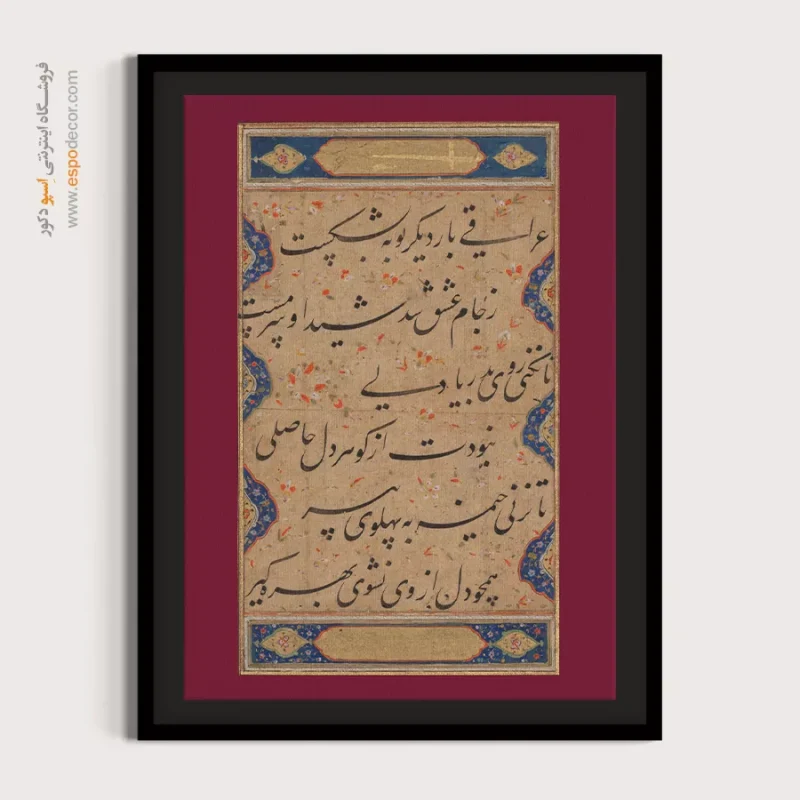 عراقی بار دیگر توبه بشکست
ز جام عشق شد شیدا و سرمست
تا نکنی روی بدریا دلی
نبودت از گوهر دل حاصلی
تا نزنی خیمه به پهلوی پیر
همچو دل از وی نشوی بهره گیر
فروشگاه اینترنتی اسپو دکور
www.espodecor.com